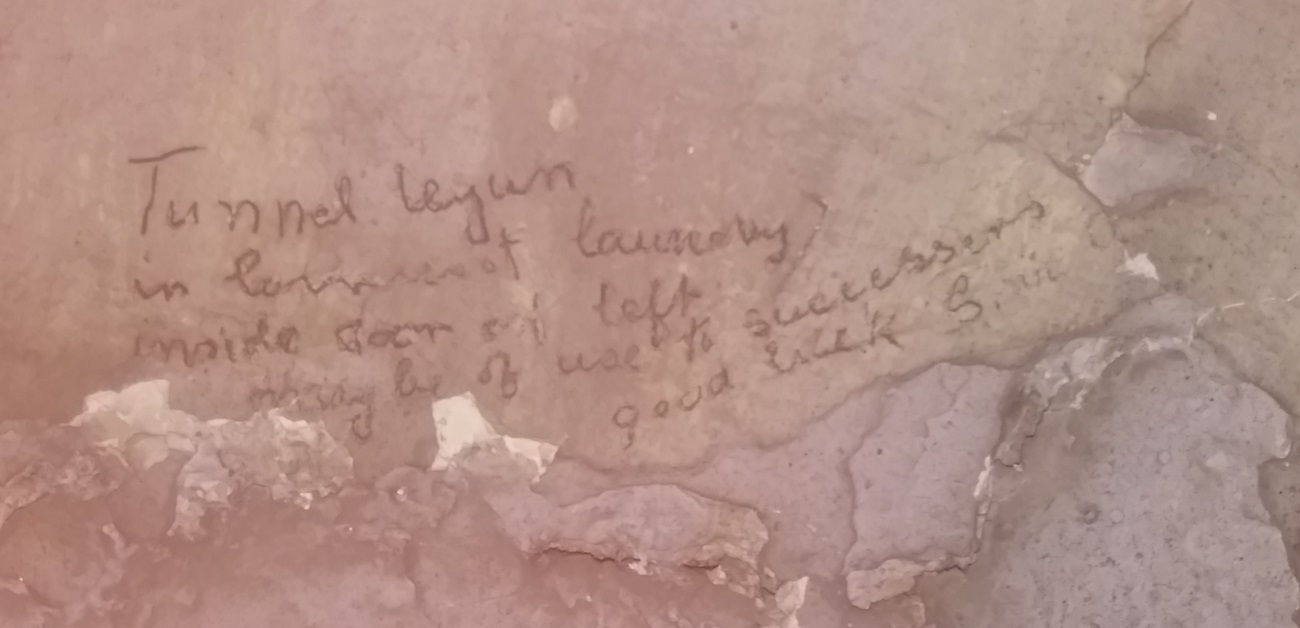 Tunnel begun
in basement of laundry
inside door on left
may be of use to successors
good luck S.